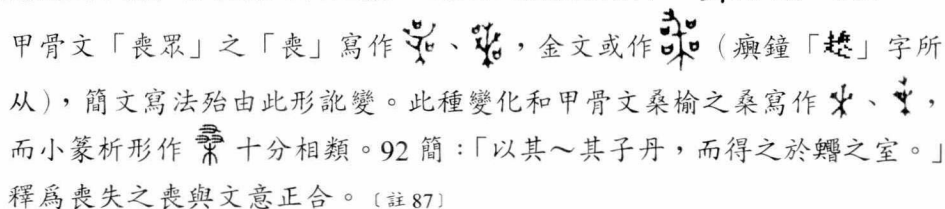 甲骨文「喪眾」之「喪」寫作、,金文或作(𤼈鐘「趮」字所
从),簡文寫法殆由此形訛變。此種變化和甲骨文桑榆之桑寫作、,
而小篆析形作十分相類。92簡:「以其～其子丹,而得之於之室。」
釋爲喪失之喪與文意正合。〔註87〕